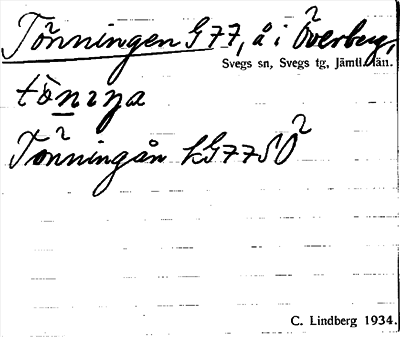 Tönningen G77, å i Överberg,
Svegs sn, Svegs tg, Jämtl. län.
Tönningån kG77SO
C. Lindberg 1934.